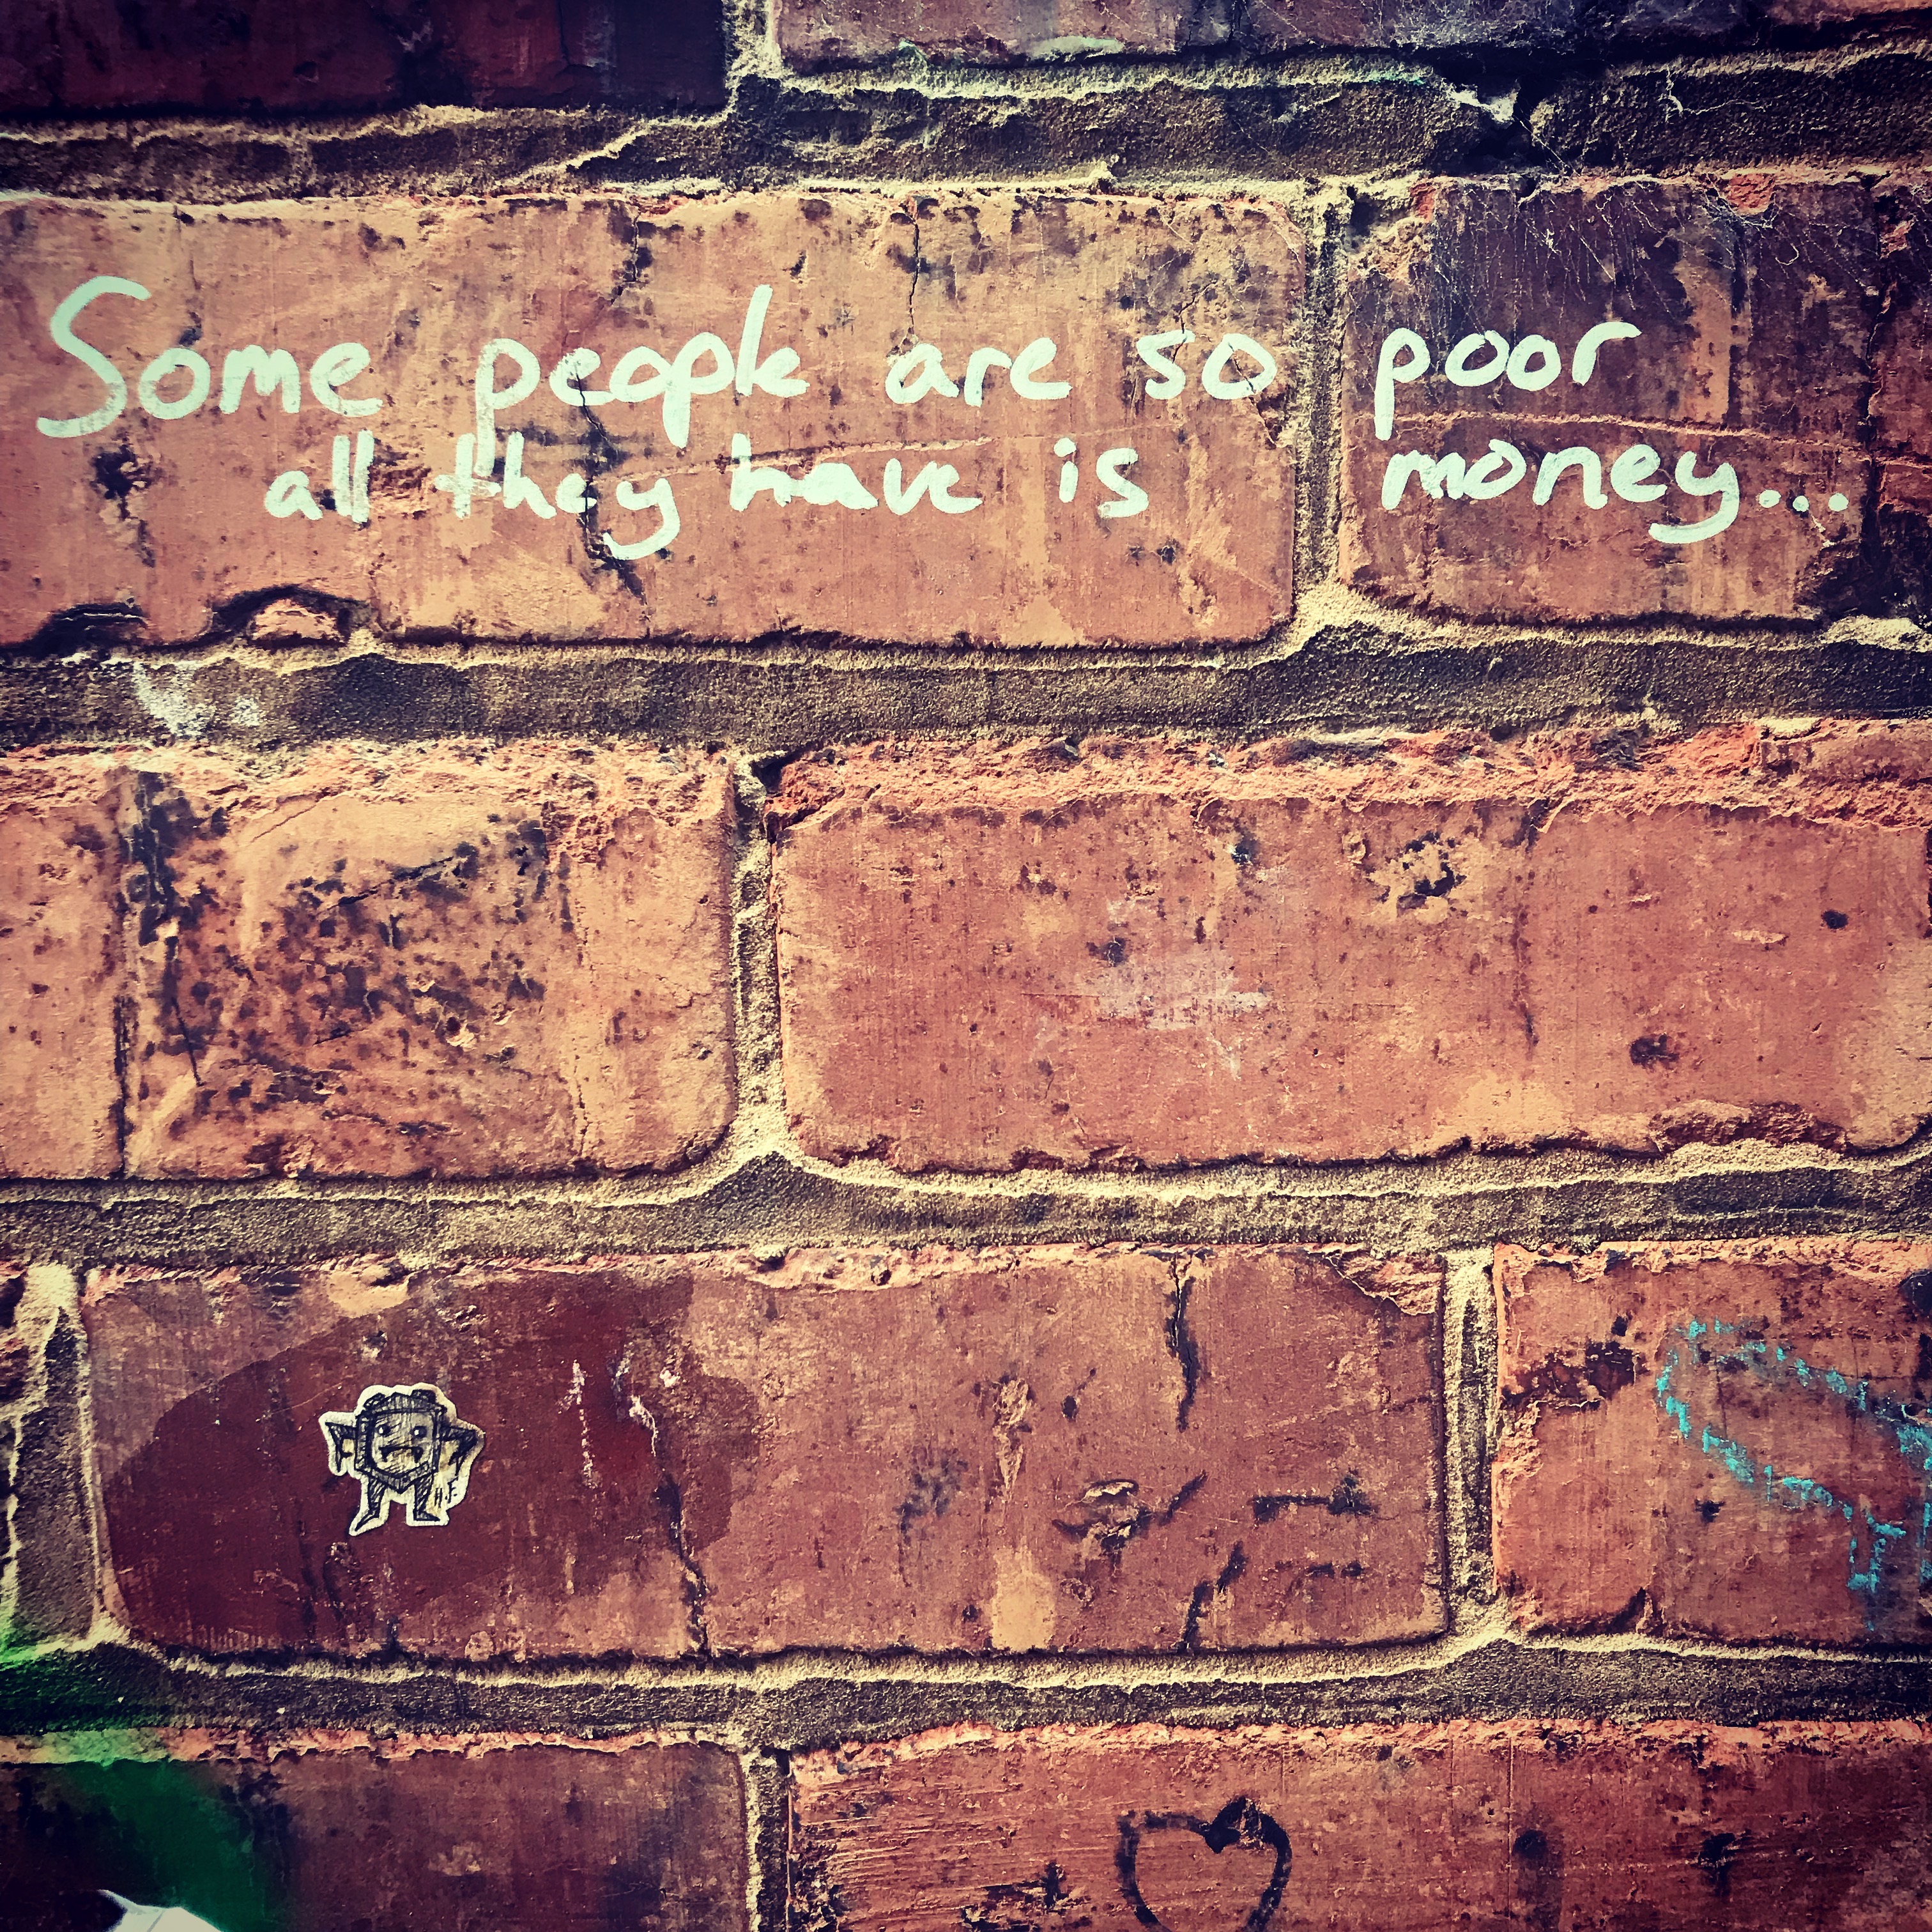 Some people are so poor
all they have is money...
H.F.